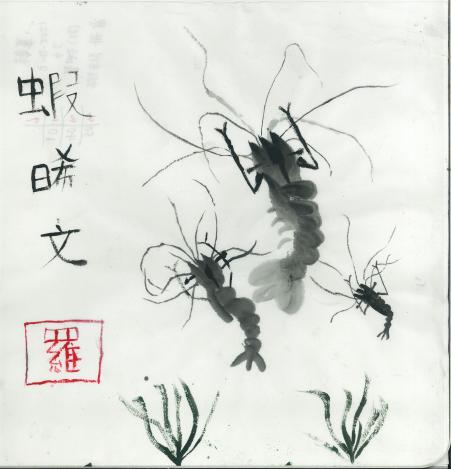 蝦
晞
文
羅